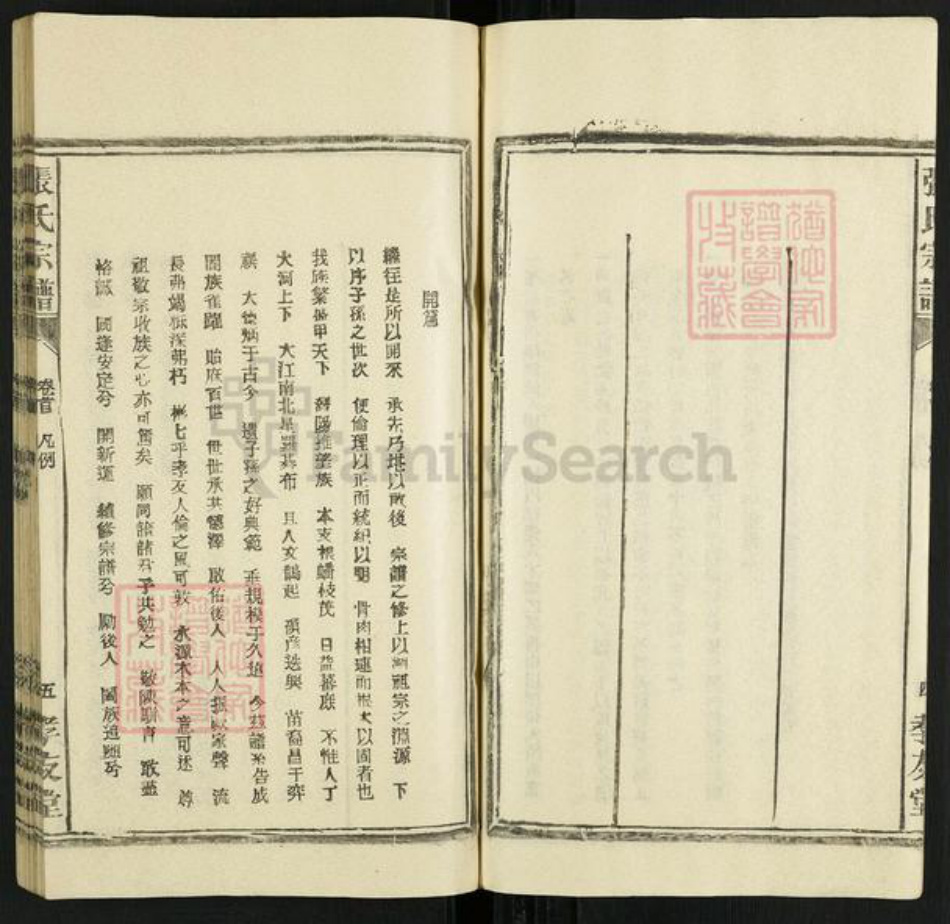 張氏宗譜
四
孝友堂
開篇
繼往是所以開來 承先乃堪以啟後 宗譜之修上以溯祖宗之淵源 下
以序子孫之世次 使倫理以正而統紀以明 骨肉相連而根本以固者也
我族繁衍甲天下 潯陽推望族 本支根蟠枝茂 日益蕃庶 不惟人丁
大河上下 大江南北星羅棋布 且人文鵲起 碩彥迭興 苗裔昌于
祺 大德炳于古今 遺子孫之好典範 垂規模于久遠 今茲譜系告成
闔族雀躍 貽庥百世 世世承其德澤 啟佑後人 人人振厥家聲 流
長弗竭 深弗朽 平素友人倫之風可敦 水源木本之意可述 尊
祖敬宗收族之心亦可篤矣 願同諸公乎共勉之 敬陳 敢盡
恪誠 國逢安定兮 開新運 續修宗譜兮 勵後人 闔族追
張氏宗譜
卷首 凡例
五
孝友堂
譜學會
收藏
FamilySearch